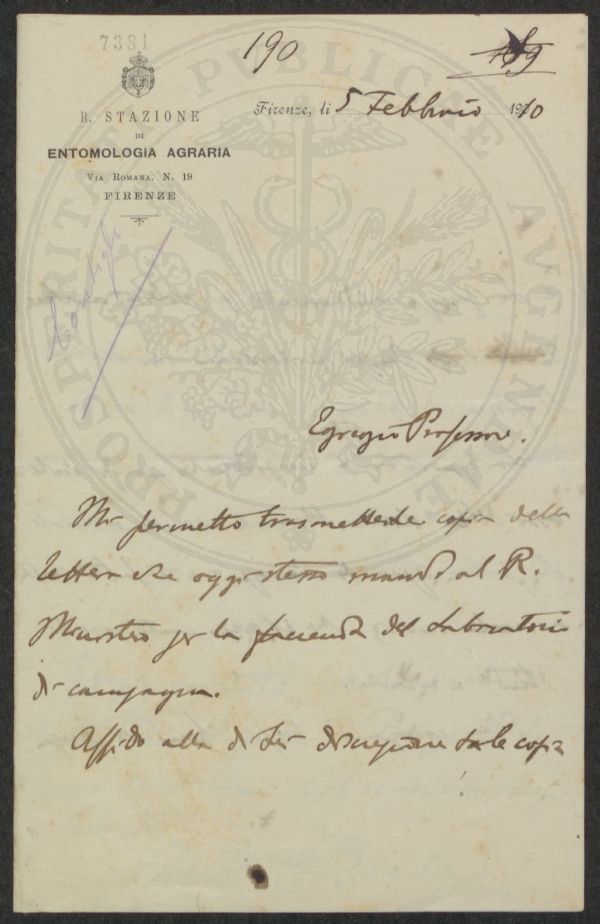 7381
190
189
R. STAZIONE
DI
ENTOMOLOGIA AGRARIA
VIA ROMANA. N. 19
FIRENZE
Firenze, li 5 Febbraio 1910
Egregio Professore.
Mi permetto trasmetterle copia della
lettera che oggi stesso mando al R.
Ministero per la faccenda del Laboratorio
di campagna.
Affido alla di Lei discrezione tale copia
PROSPERITATI PUBLICAE AVGENDAE